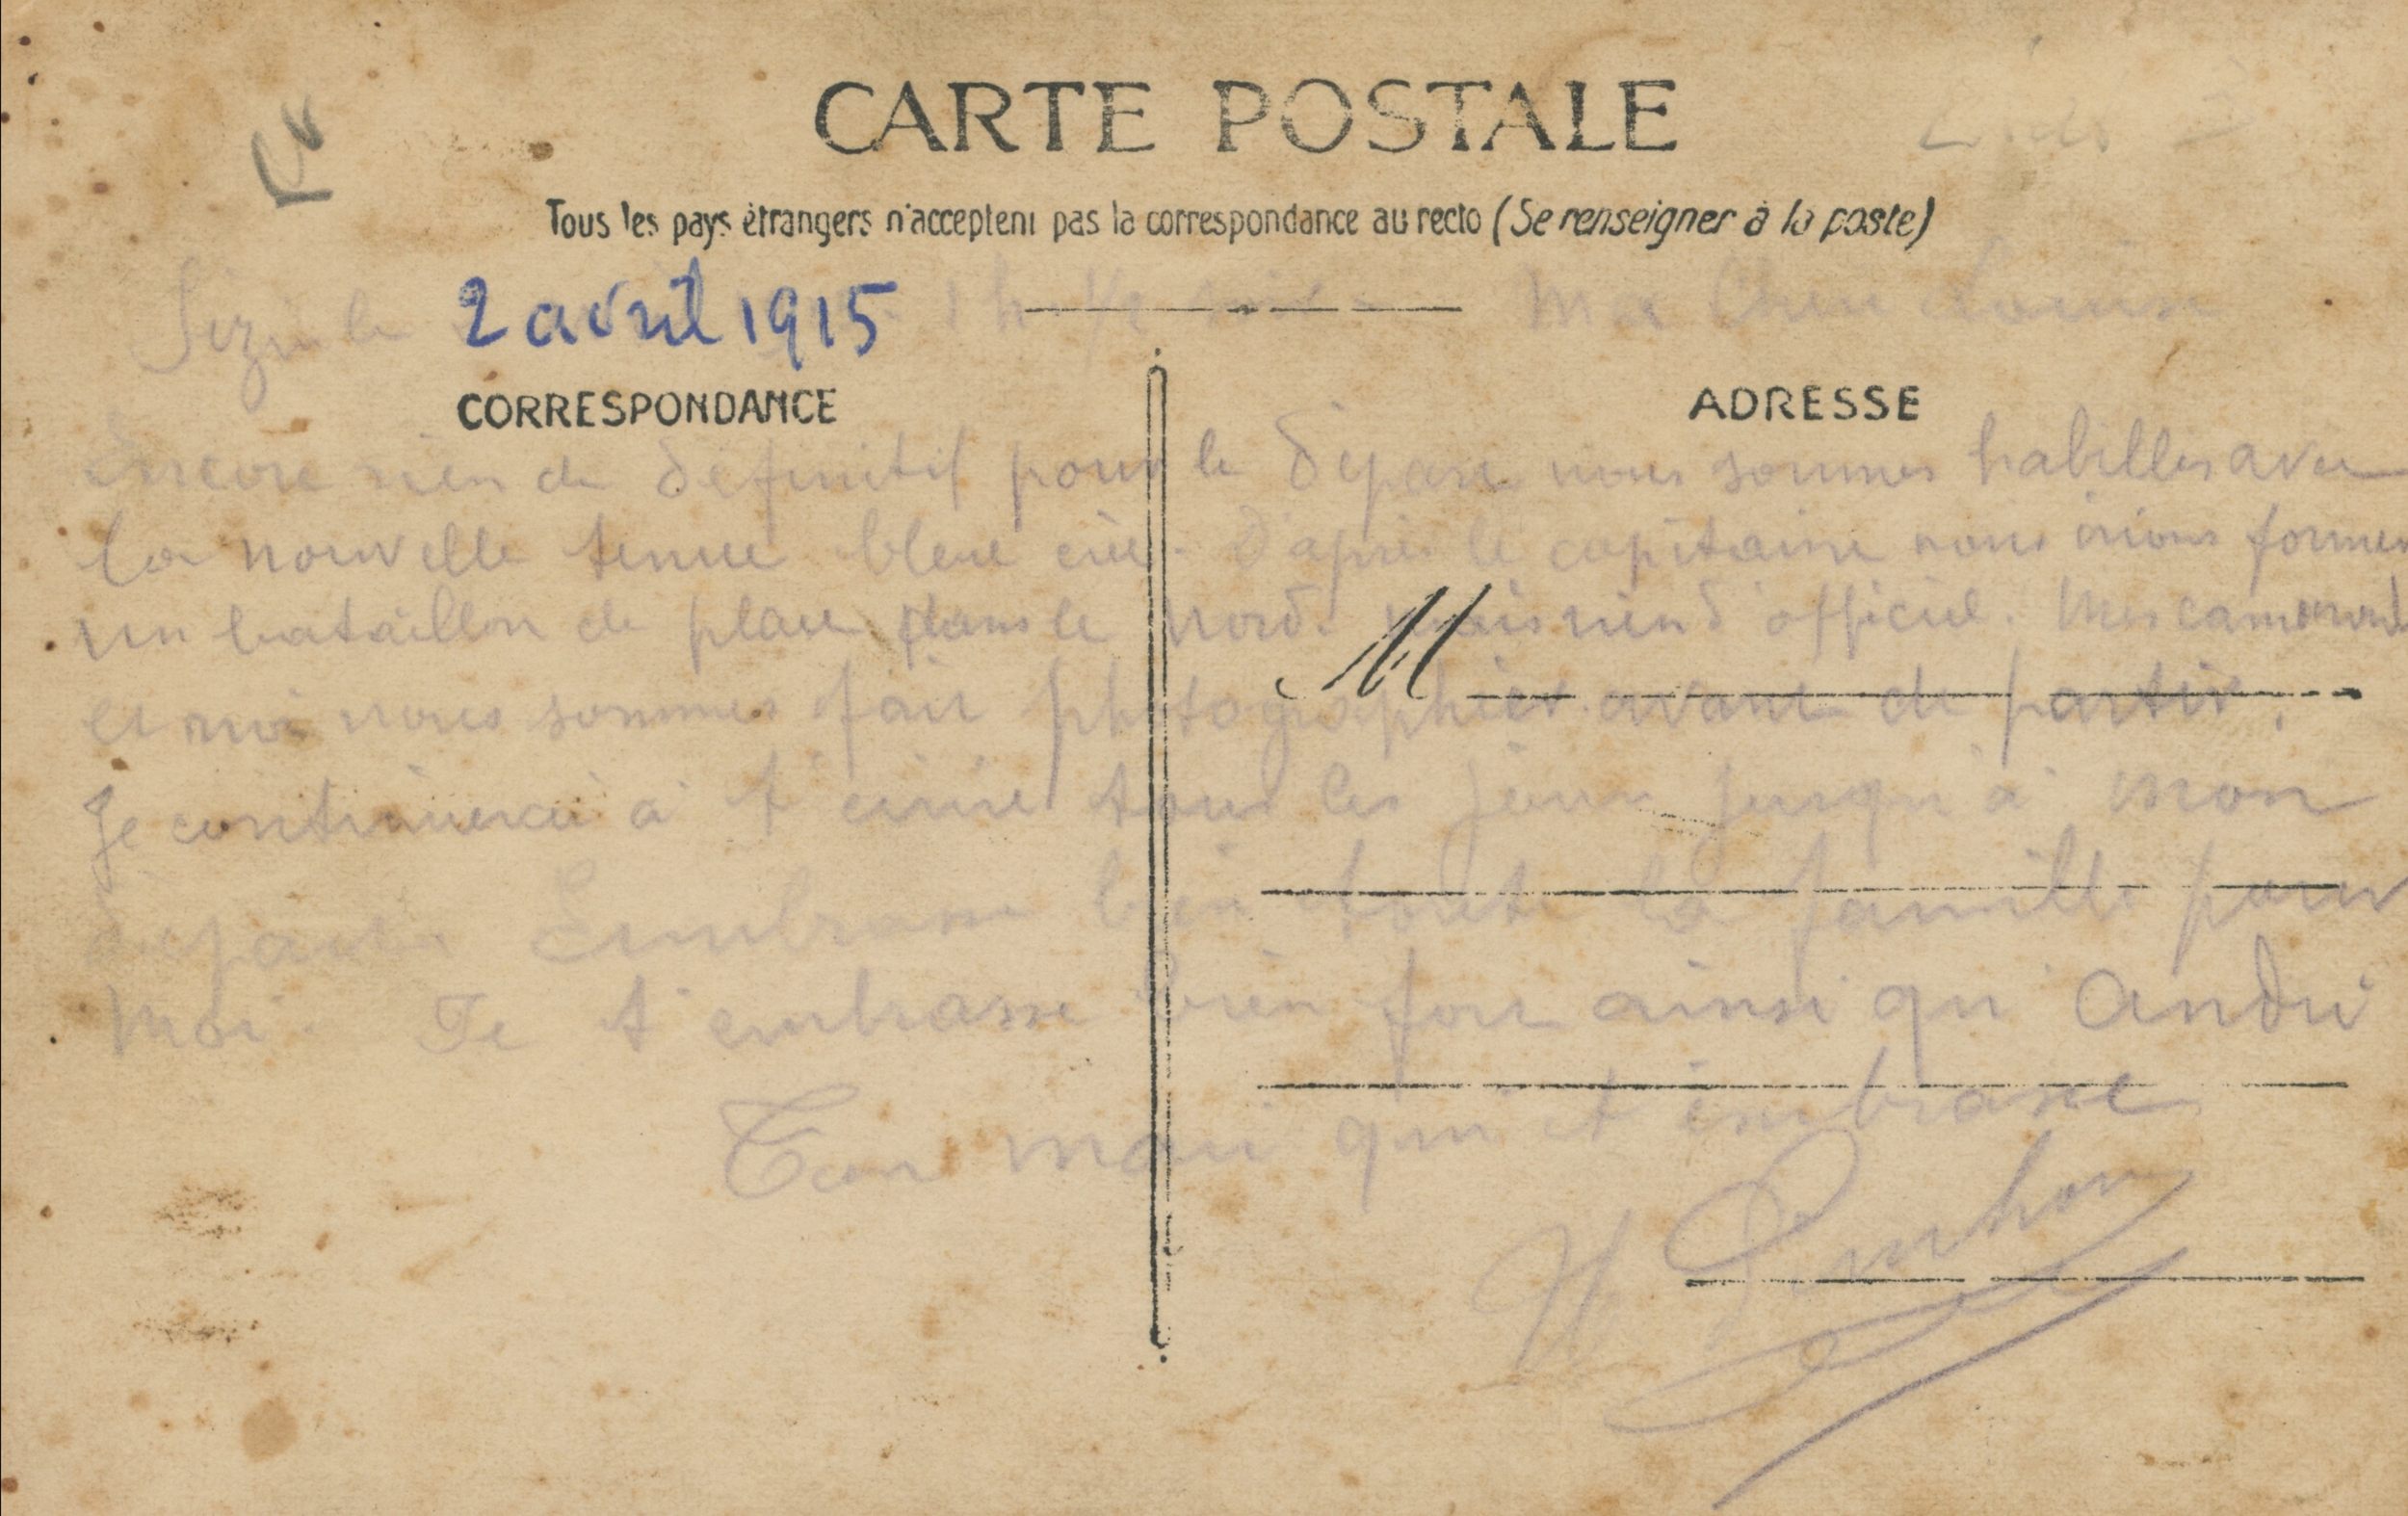 CARTE POSTALE
Tous les pays étrangers n'acceptent pas la correspondance au recto (Se renseigner à la poste)
le 2 avril 1915 1 h 1/2 Ma Cheri Louise
CORRESPONDANCE
ADRESSE
Encore rien de définitif pour le départ nous sommes habilles avec
la nouvelle tenue bleue ciel. D'après le capitaine nous irions former
un bataillon de place dans le nord. mais rien d'officiel. Mes camarades
et moi nous sommes fait photographier avant de partir.
M
Je continuerai a t'ecrire tous les jours jusqu'a mon
départ. Embrasse bien toute la famille pour
moi. Je t'embrasse bien fort ainsi qu'André
Ton mari qui t'embrasse